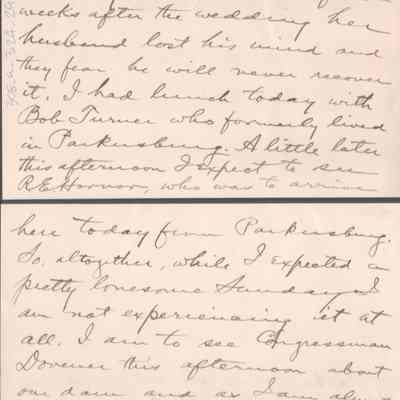 weeks after the wedding her
husband lost his mind and
they fear he will never recover
it. I had lunch today with
Bob Turner who formerly lived
in Parkersburg. A little later
this afternoon I expect to see
R.E. Hornor, who was to arrive
here today from Parkersburg.
So, altogether, while I expected a
pretty lonesome Sunday I
am not experiencing it at
all. I am to see Congressman
Dovener this afternoon about
our dam and as I am